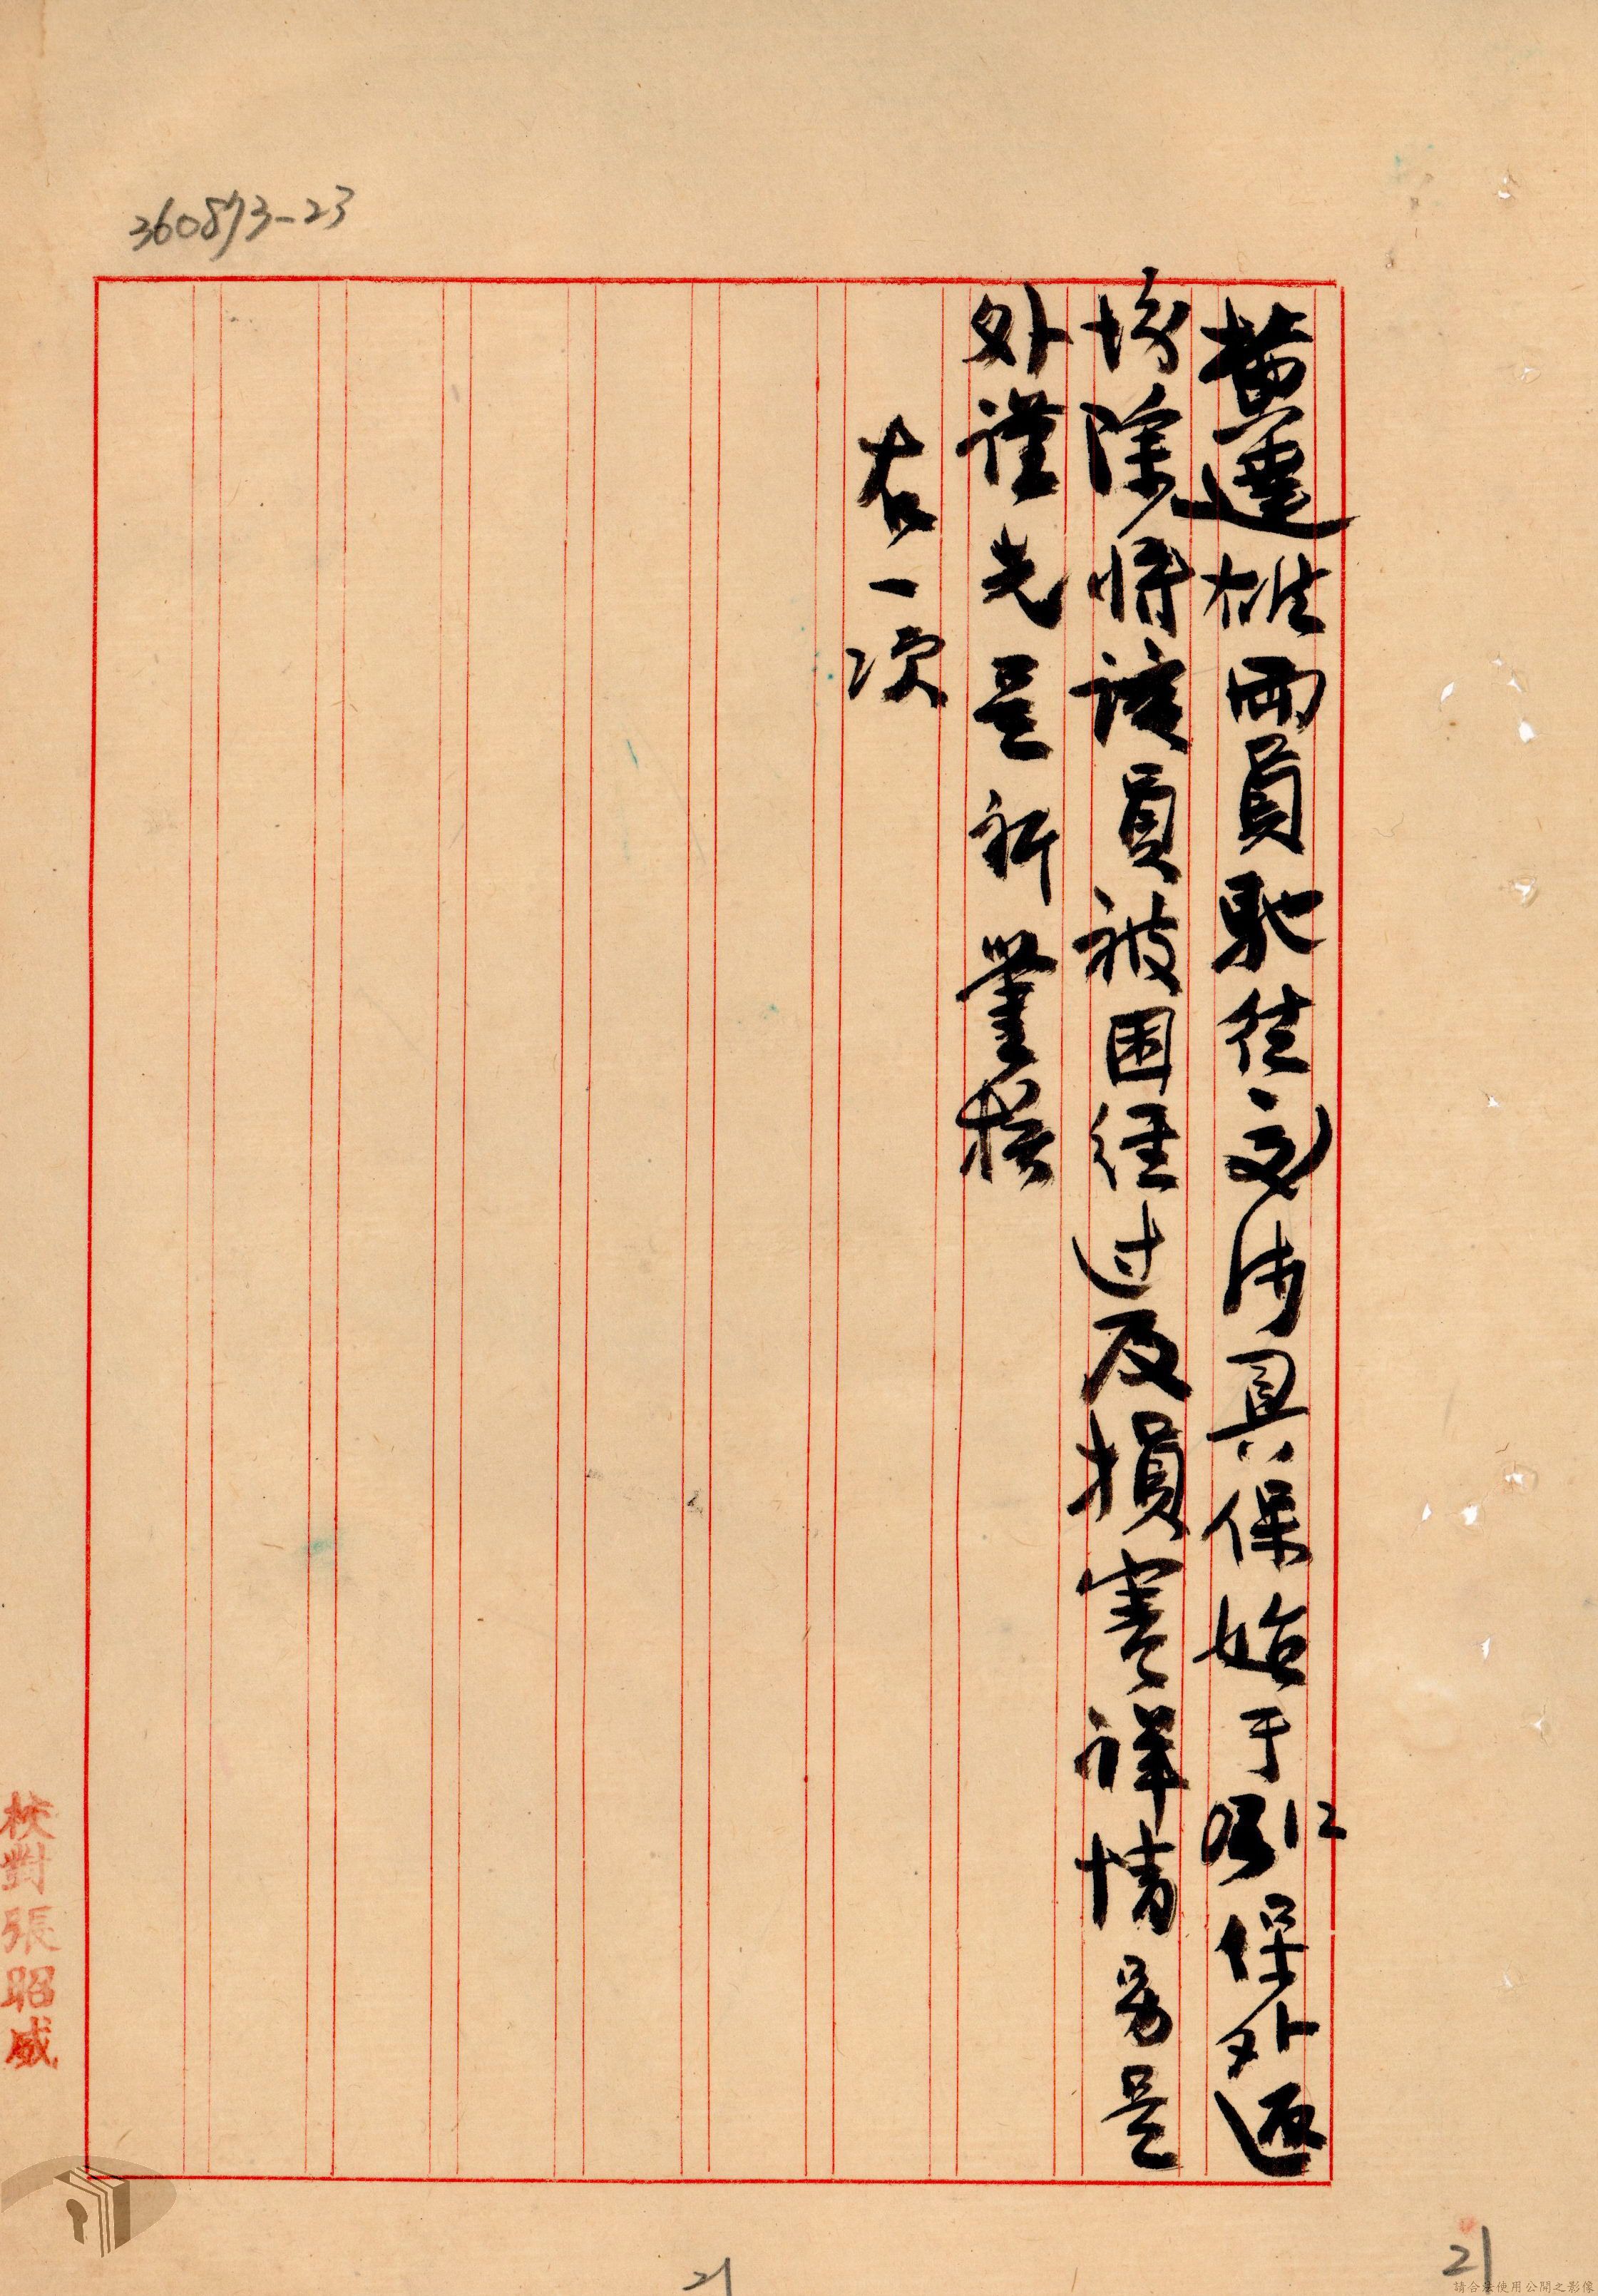 360873-23
黃達雄兩員馳往交涉具保始于12保外返
場除將該員被困經过及損害詳情另呈
外謹先呈祈鑒核
右一次
校對張昭威
21
21
請合法使用公開之影像